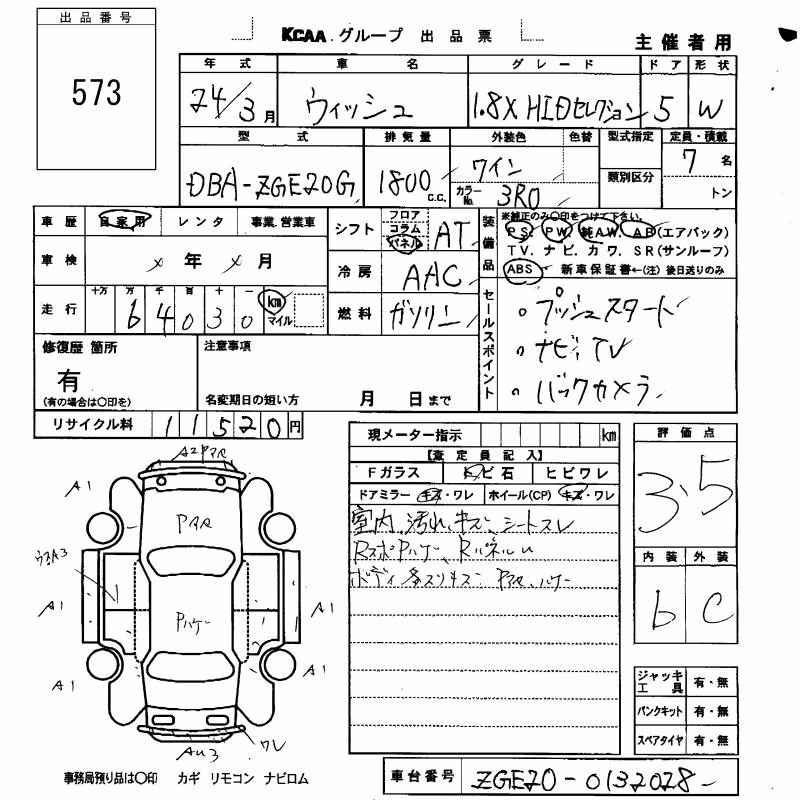 出品番号
573
KCAA.グループ 出品票
主催者用
年式 車名 グレード ドア 形状
24/3月 ウィッシュ 1.8X HIDセレクション 5 W
型式 排気量 外装色 色替 型式指定 定員・積載
DBA-ZGE20G 1800 c.c. ワイン 類別区分 7名
カラーNo. 3R0 トン
車歴 自家用 レンタ 事業.営業車
シフト フロア コラム パネル AT
装備品 ※純正のみ○印をつけて下さい。
PS, PW, 純AW, AB(エアバック)
TV. ナビ. カワ. SR(サンルーフ)
ABS 新車保証書←(注) 後日送りのみ
車検 メ年メ月
冷房 AAC
走行 十万 万 千 百 十 一
64030 km マイル
燃料 ガソリン
セールスポイント
。プッシュスタート
。ナビ、TV
。バックカメラ
修復歴 箇所 注意事項
有
(有の場合は○印を)
名変期日の短い方 月 日まで
リサイクル料 11520円
現メーター指示 km
【査定員記入】
Fガラス トビ石 ヒビワレ
ドアミラー キズ・ワレ ホイール(CP) キズ・ワレ
室内、汚れ、キズ、シートスレ
RスポPハゲ、Rパネルu
ボディ多スリキズ PアA、ハゲ
評価点
3.5
内装 外装
b C
A2PアA
A1
PアA
ウスA3
A1
A1
Pハゲ
A1
A1
A1
ワレ
AU3
ジャッキ工具 有・無
パンクキット 有・無
スペアタイヤ 有・無
事務局預り品は○印 カギ リモコン ナビロム
車台番号 ZGE20-0132028